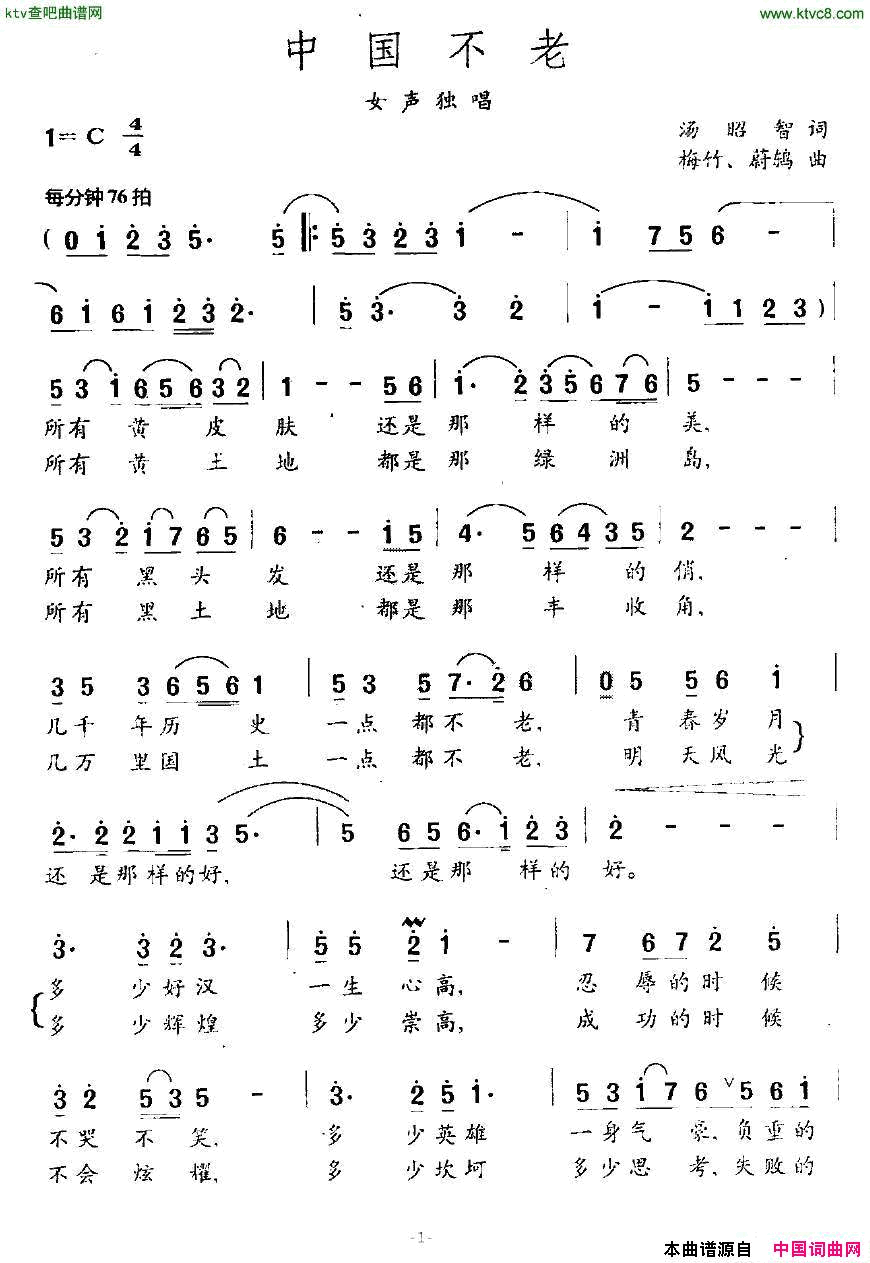 ktv查吧曲谱网
www.ktvc8.com
中国不老
女声独唱
1=C 4/4
汤昭智词
梅竹、蔚鸲曲
每分钟76拍
(0 1 2 3 5· 5 |: 5 3 2 3 1 - | 1 7 5 6 - |
6 1 6 1 2 3 2· | 5 3· 3 2 | 1 - 1 1 2 3) |
5 3 1 6 5 6 3 2 | 1 - - 5 6 | 1· 2 3 5 6 7 6 | 5 - - - |
所有黄皮肤 还是那样的美,
所有黄土地 都是那绿洲岛,
5 3 2 1 7 6 5 | 6 - - 1 5 | 4· 5 6 4 3 5 | 2 - - - |
所有黑头发 还是那样的俏,
所有黑土地 都是那丰收角,
3 5 3 6 5 6 1 | 5 3 5 7· 2 6 | 0 5 5 6 1 |
几千年历史 一点都不老, 青春岁月
几万里国土 一点都不老, 明天风光
2· 2 2 1 1 3 5· | 5 6 5 6· 1 2 3 | 2 - - - |
还是那样的好, 还是那样的好。
3· 3 2 3· | 5 5 2 1 - | 7 6 7 2 5 |
多少好汉 一生心高, 忍辱的时候
多少辉煌 多少崇高, 成功的时候
3 2 5 3 5 - | 3· 2 5 1· | 5 3 1 7 6 ∨ 5 6 1 |
不哭不笑, 多少英雄 一身气豪, 负重的
不会炫耀, 多少坎坷 多少思考, 失败的
-1-
本曲谱源自 中国词曲网